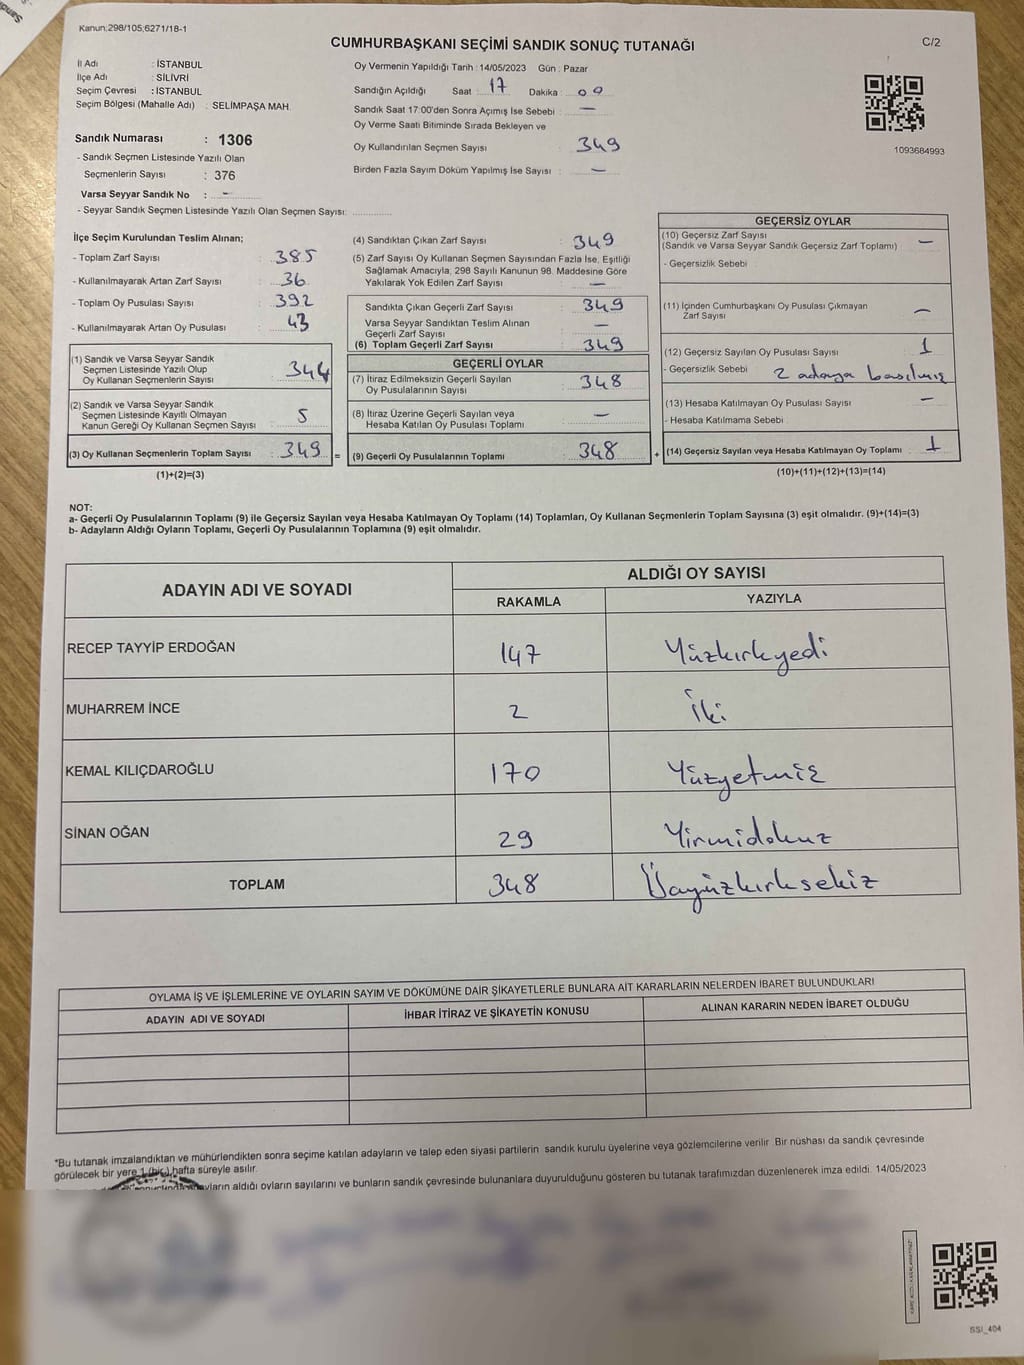 Kanun;298/105;6271/18-1
CUMHURBAŞKANI SEÇİMİ SANDIK SONUÇ TUTANAĞI
C/2
İl Adı : İSTANBUL
İlçe Adı : SİLİVRİ
Seçim Çevresi : İSTANBUL
Seçim Bölgesi (Mahalle Adı) : SELİMPAŞA MAH.
Sandık Numarası : 1306
- Sandık Seçmen Listesinde Yazılı Olan
Seçmenlerin Sayısı : 376
Varsa Seyyar Sandık No : -
- Seyyar Sandık Seçmen Listesinde Yazılı Olan Seçmen Sayısı:
Oy Vermenin Yapıldığı Tarih : 14/05/2023 Gün : Pazar
Sandığın Açıldığı Saat : 17 Dakika : 00
Sandık Saat 17:00'den Sonra Açımış İse Sebebi : —
Oy Verme Saati Bitiminde Sırada Bekleyen ve
Oy Kullandırılan Seçmen Sayısı : 349
Birden Fazla Sayım Döküm Yapılmış İse Sayısı : —
1093684993
İlçe Seçim Kurulundan Teslim Alınan;
- Toplam Zarf Sayısı : 385
- Kullanılmayarak Artan Zarf Sayısı : 36
- Toplam Oy Pusulası Sayısı : 392
- Kullanılmayarak Artan Oy Pusulası : 43
(1) Sandık ve Varsa Seyyar Sandık
Seçmen Listesinde Yazılı Olup
Oy Kullanan Seçmenlerin Sayısı : 344
(2) Sandık ve Varsa Seyyar Sandık
Seçmen Listesinde Kayıtlı Olmayan
Kanun Gereği Oy Kullanan Seçmen Sayısı : 5
(3) Oy Kullanan Seçmenlerin Toplam Sayısı : 349 =
(1)+(2)=(3)
(4) Sandıktan Çıkan Zarf Sayısı : 349
(5) Zarf Sayısı Oy Kullanan Seçmen Sayısından Fazla İse, Eşitliği
Sağlamak Amacıyla, 298 Sayılı Kanunun 98. Maddesine Göre
Yakılarak Yok Edilen Zarf Sayısı : —
Sandıkta Çıkan Geçerli Zarf Sayısı : 349
Varsa Seyyar Sandıktan Teslim Alınan
Geçerli Zarf Sayısı : —
(6) Toplam Geçerli Zarf Sayısı : 349
GEÇERLİ OYLAR
(7) İtiraz Edilmeksizin Geçerli Sayılan
Oy Pusulalarının Sayısı : 348
(8) İtiraz Üzerine Geçerli Sayılan veya
Hesaba Katılan Oy Pusulası Toplamı : —
(9) Geçerli Oy Pusulalarının Toplamı : 348 +
GEÇERSİZ OYLAR
(10) Geçersiz Zarf Sayısı
(Sandık ve Varsa Seyyar Sandık Geçersiz Zarf Toplamı) : —
- Geçersizlik Sebebi :
(11) İçinden Cumhurbaşkanı Oy Pusulası Çıkmayan
Zarf Sayısı : —
(12) Geçersiz Sayılan Oy Pusulası Sayısı : 1
- Geçersizlik Sebebi : 2 adaya basılmış
(13) Hesaba Katılmayan Oy Pusulası Sayısı : —
- Hesaba Katılmama Sebebi :
(14) Geçersiz Sayılan veya Hesaba Katılmayan Oy Toplamı : 1
(10)+(11)+(12)+(13)=(14)
NOT:
a- Geçerli Oy Pusulalarının Toplamı (9) ile Geçersiz Sayılan veya Hesaba Katılmayan Oy Toplamı (14) Toplamları, Oy Kullanan Seçmenlerin Toplam Sayısına (3) eşit olmalıdır. (9)+(14)=(3)
b- Adayların Aldığı Oyların Toplamı, Geçerli Oy Pusulalarının Toplamına (9) eşit olmalıdır.
ADAYIN ADI VE SOYADI
ALDIĞI OY SAYISI
RAKAMLA YAZIYLA
RECEP TAYYİP ERDOĞAN 147 Yüzkırkyedi
MUHARREM İNCE 2 İki
KEMAL KILIÇDAROĞLU 170 Yüzyetmiş
SİNAN OĞAN 29 Yirmidokuz
TOPLAM 348 Üçyüzkırksekiz
OYLAMA İŞ VE İŞLEMLERİNE VE OYLARIN SAYIM VE DÖKÜMÜNE DAİR ŞİKAYETLERLE BUNLARA AİT KARARLARIN NELERDEN İBARET BULUNDUKLARI
ADAYIN ADI VE SOYADI İHBAR İTİRAZ VE ŞİKAYETİN KONUSU ALINAN KARARIN NEDEN İBARET OLDUĞU
*Bu tutanak imzalandıktan ve mühürlendikten sonra seçime katılan adayların ve talep eden siyasi partilerin sandık kurulu üyelerine veya gözlemcilerine verilir. Bir nüshası da sandık çevresinde
görülecek bir yere 1 (bir) hafta süreyle asılır.
aldığı oyların sayılarını ve bunların sandık çevresinde bulunanlara duyurulduğunu gösteren bu tutanak tarafımızdan düzenlenerek imza edildi. 14/05/2023
SSI_404